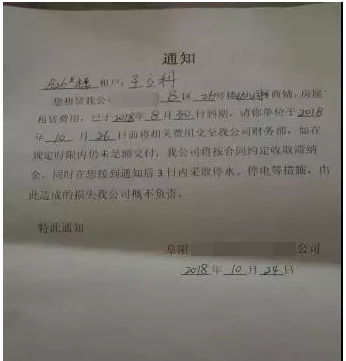 通知
B26#楼 租户:
您租赁我公 B区 26号楼 商铺,房屋
租赁费用,已于2018年8月30日到期,请你单位于2018
年10月26日前将相关费用交至我公司财务部,如在
规定时限内仍未足额交付,我公司将按合同约定收取滞纳
金,同时在您接到通知后3日内采取停水、停电等措施,由
此造成的损失我公司概不负责。
特此通知
阜阳 公司
2018年10月24日